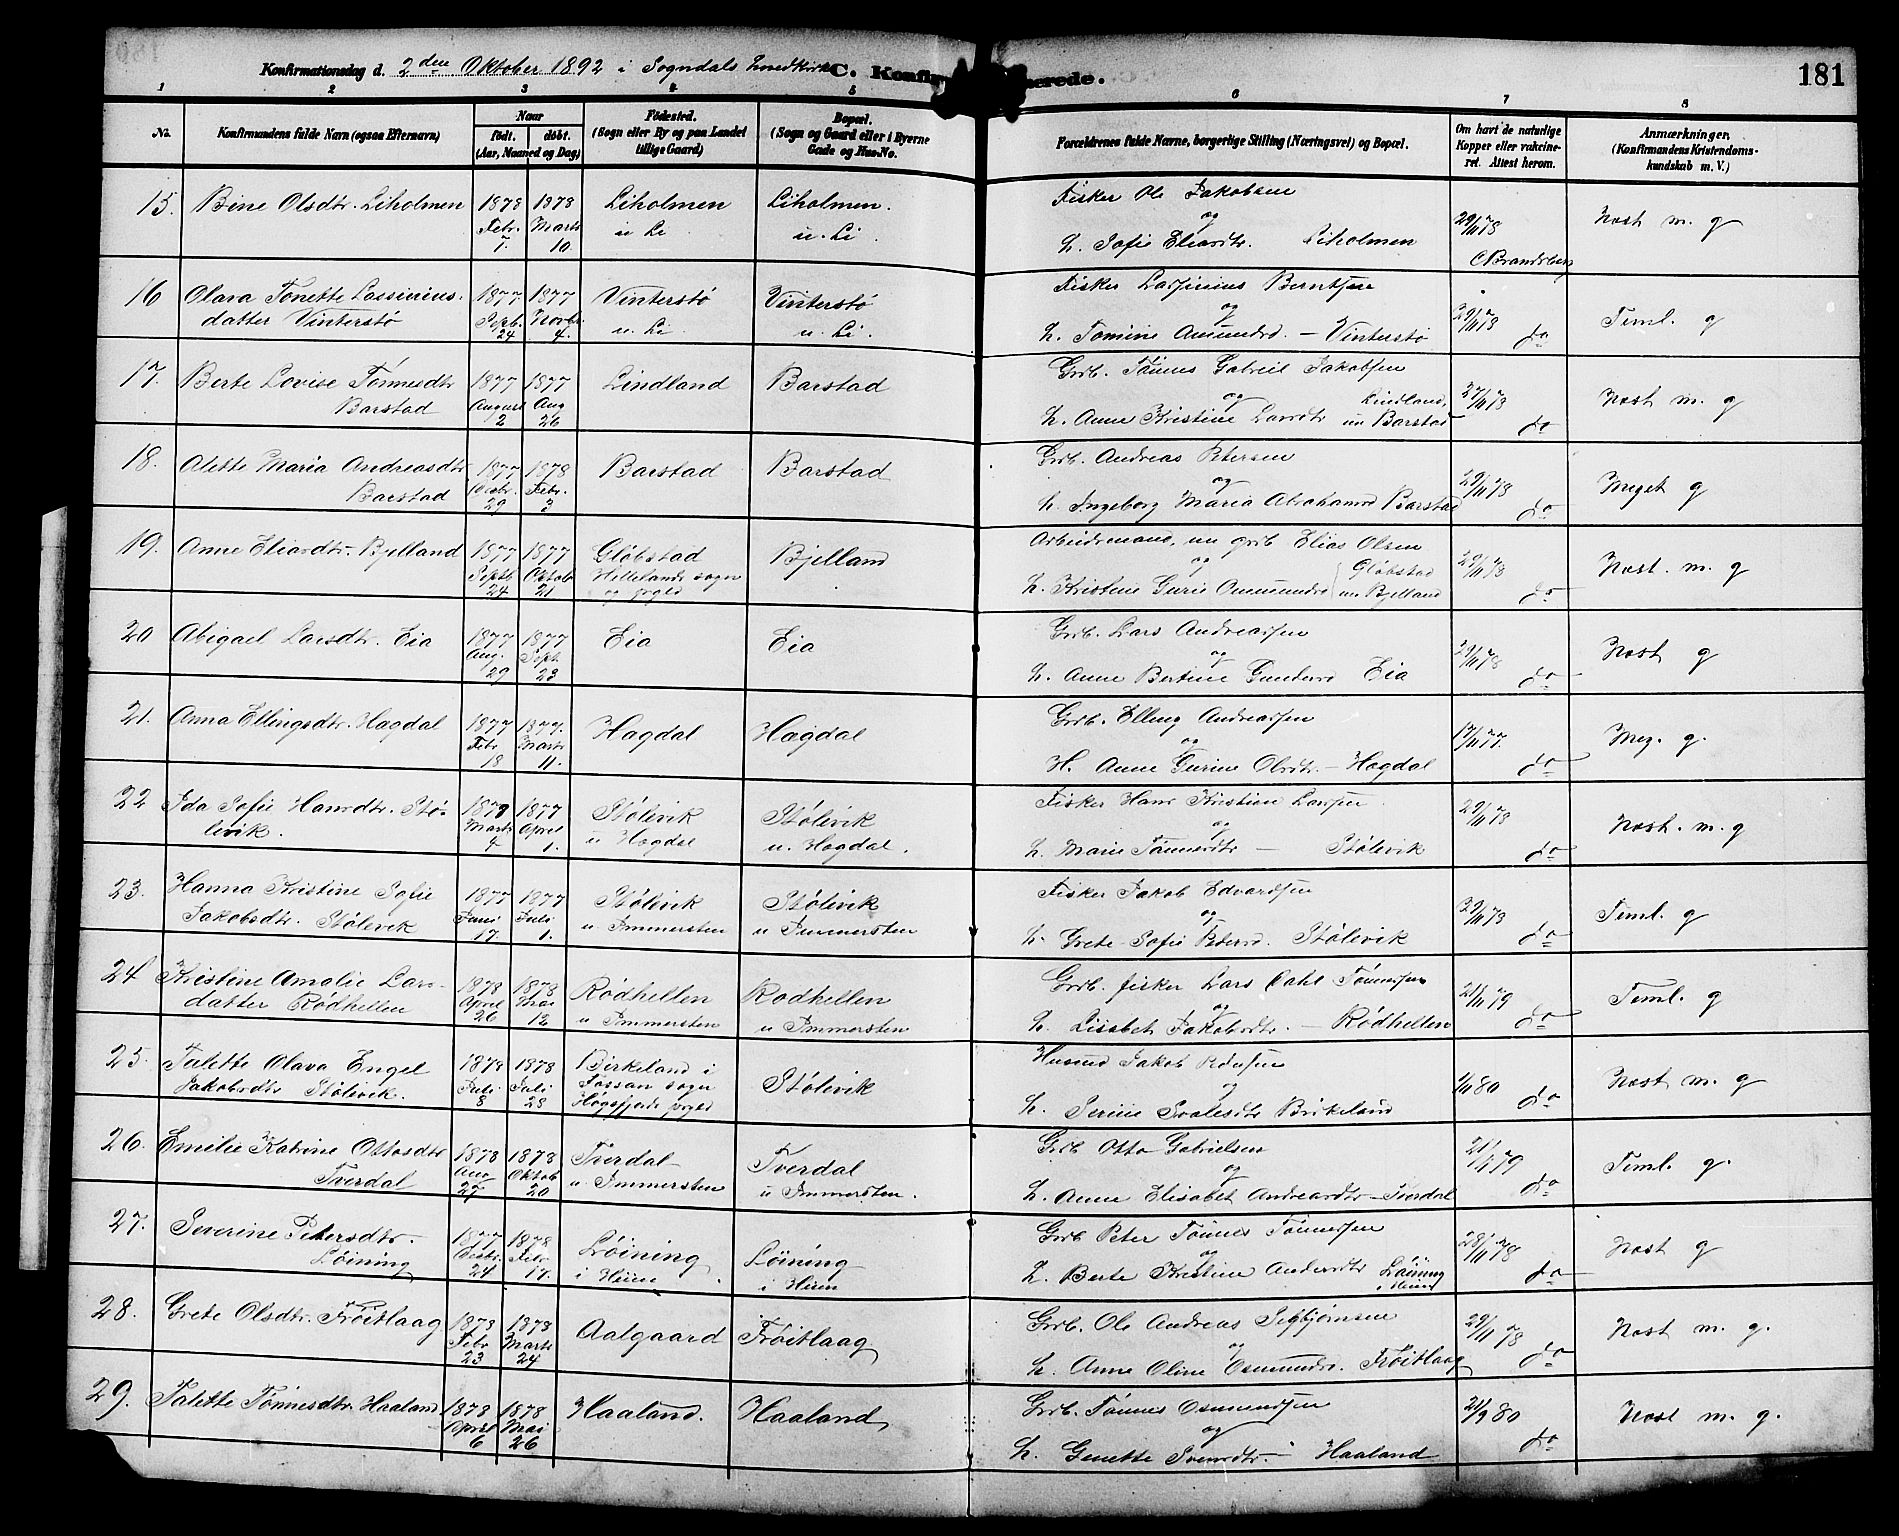 Konfirmationsdag d. 2den Oktober 1892 i Sogndals C. Konfirmerede. 181
1 2 3 4 5 6 7 8
No. Konfirmandens fulde Navn (ogsaa Efternavn) Naar født. døbt. (Aar, Maaned og Dag) Fødested. (Sogn eller By og paa Landet tillige Gaard) Bopæl. (Sogn og Gaard eller i Byerne Gade og Hus-No. Forældrenes fulde Navne, borgerlige Stilling (Næringsvei) og Bopæl. Om havt de naturlige Kopper eller vakcineret. Attest herom. Anmærkninger. (Konfirmandens Kristendomskundskab m. V.)
15. Bine Olsdtr. Liholmen 1878 Febr. 7. 1878 Marts 10. Liholmen u Li Liholmen. u. Li. Fisker Ole Jakobsen
og
h. Sofie Eliasdtr. Liholmen 29/11 78 C Brandsberg Næst m. g
16 Olava Tonette Lassinius-
datter Vinterstø 1877 Septb. 24 1877 Novbr. 4. Vinterstø u. Li Vinterstø u. Li. Fisker Lassinius Berntsen
og
h. Tomine Amundsd. – Vinterstø 29/11 78 do Teml. g
17. Berte Lovise Tønnesdtr
Barstad 1877 August 2 1877 Aug 26 Lindland Barstad Grb. Tønnes Gabriel Jakobsen
og Lindland,
h. Anne Kristine Larsdtr nu Barstad 27/11 78 do Næst m. g
18. Alette Maria Andreasdtr
Barstad 1877 Decbr. 29 1878 Febr. 3 Barstad Barstad Grb. Andreas Petersen
og
h. Ingeborg Maria Abrahamsd Barstad 29/11 78 do Meget g
19. Anne Eliasdtr. Bjelland 1877 Septb 24 1877 Oktob 21 Gløbstad Hellelands sogn og prgld Bjelland Arbeidsmand, nu grb Elias Olsen
og Gløbstad
h. Kristine Gurie Osmundsd nu Bjelland 29/11 78 do Næst. m. g
20 Abigael Larsdtr. Eia 1877 Aug. 29 1877 Sept. 23 Eia Eia Grb. Lars Andreassen
og
h. Anne Bertine Gundersd Eia 29/11 78 do Næst g
21. Anna Ellingsdtr. Hagdal 1877 Febr 18 1877. Marts 11. Hagdal Hagdal Grb. Elling Andreassen
og
H. Anne Gurine Olsdtr. – Hagdal 17/11 77. do Meg. g.
22 Ida Sofie Hansdtr. Stø-
levik. Marts 4 1877 April 1. Stølevik u Hagdal Stølevik u. Hagdal. Fisker Hans Kristine Larsen
og
h. Marie Tønnesdtr – Stølevik 29/11 78 do Næst. m. g
23. Hanna Kristine Sofie
Jakobsdtr. Stølevik 1877 Juni 17. 1877 Juli 1. Stølevik u Immersten Stølevik u Immersten Fisker Jakob Edvardsen
og
h. Grete Sofie Petersd. Stølevik 29/11 78 do Teml. g
24 Kristine Amalie Lars-
datter Rødhellen 1878 April 26 1878 Mai 12 Rødhellen u Immersten Rødhellen u Immersten Grb. fisker Lars Dahl Tønnessen
og
h. Lisabet Jakobsdtr. – Rødhellen 21/11 79 do Teml. g
25. Talette Olava Engel
Jakobsdtr Stølevik. 1878 Juli 8 1878 Juli 28 Birkeland i Fossan sogn Høgsfjords prgld Stølevik Husmd Jakob Pedersen
og
h. Serine Svalesdtr Birkeland 1/11 80 do Næst m. g
26. Emilie Katrine Ottosdtr
Tverdal 1878 Aug 27 1878 Oktob 20 Tverdal u. Immersten Tverdal u Immersten. Grb Otto Gabrielsen
og
h. Anne Elisabet Andreasdtr – Tverdal 79 do Teml. g.
27. Severine Petersdtr.
Løining 1877 Decbr. 24 1878 Febr. 17. Løining i Heien Løining i Heien Grb Peter Tønnes Tønnessen
og
h. Berte Kristine Andersdtr Løining i Heien 28/11 78 do Næst g
28. Grete Olsdtr. Frøitlaag 1878 Febr 23 1878 Marts 24 Aalgaard Frøitlaag Grb. Ole Andreas Segbjørnsen
og
h. Anne Oline Osmundsd. Frøitlaag 29/11 78 do Næst m. g.
29. Talette Tønnesdtr. Haaland 1878 April 6 1878 Mai 26 Haaland. Haaland Grb. Tønnes Osmundsen
og
h. Genette Svensdtr. – Haaland 21/9 80 do Næst m. g.